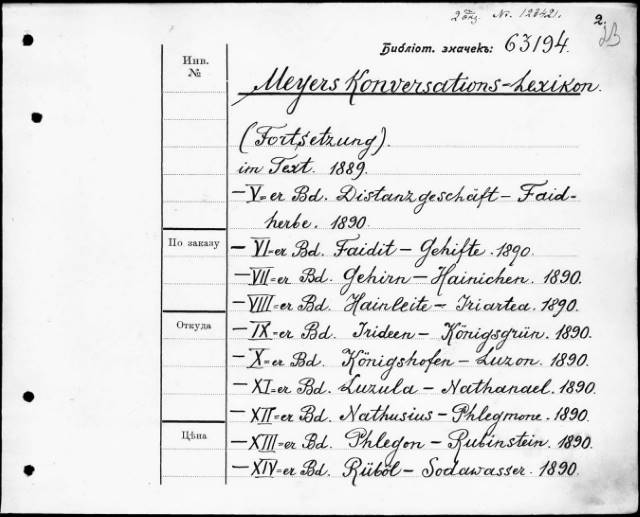 2 Экз. № 128421.
2.
Библіот. значекъ: 63194.
Инв. №
Meyers Konversations-Lexikon.
(Fortsetzung).
im Text. 1889.
— V=er Bd. Distanzgeschäft — Faid-
herbe. 1890.
По заказу
— VI=er Bd. Faidit — Gehilfe. 1890.
— VII=er Bd. Gehirn — Hainichen. 1890.
— VIII=er Bd. Hainleite — Iriartea. 1890.
Откуда
— IX=er Bd. Irideen — Königsgrün. 1890.
— X=er Bd. Königshofen — Luzon. 1890.
— XI=er Bd. Luzula — Nathanael. 1890.
— XII=er Bd. Nathusius — Phlegmone. 1890.
Цѣна
— XIII=er Bd. Phlegon — Rubinstein. 1890.
— XIV=er Bd. Rüböl — Sodawasser. 1890.